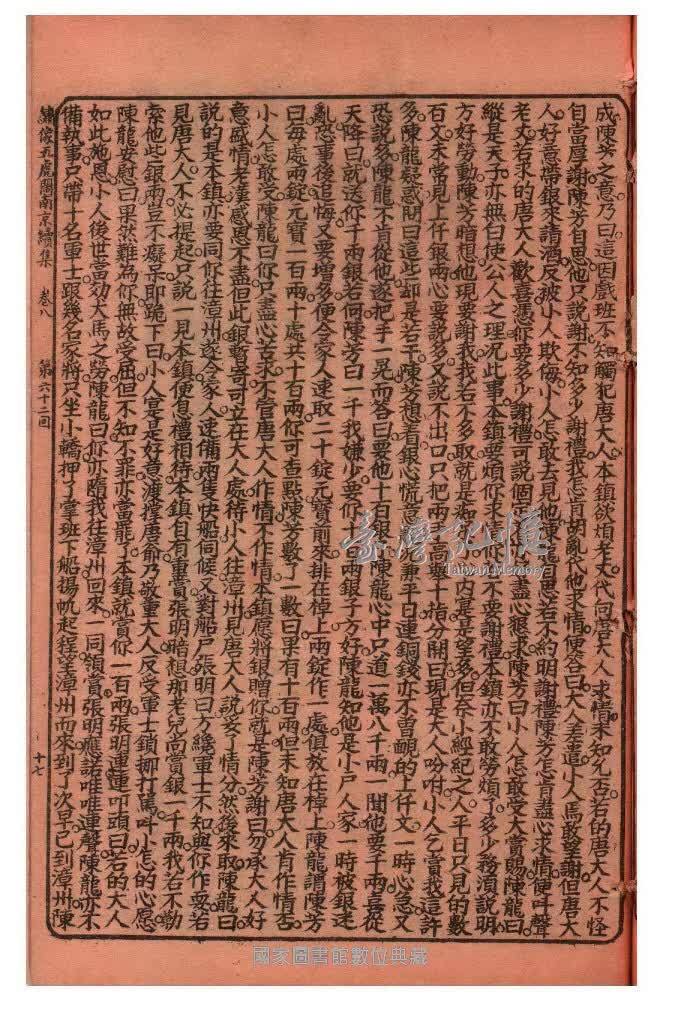 成陳芳之意乃曰這因戲班不知觸犯唐大人本鎮欲煩老丈代向唐大人求情未知允否若的唐大人不怪
自當厚謝陳芳自思他只說謝不知多少謝禮我怎肯胡亂代他求情便答曰大人差遣小人焉敢望謝但唐大
人好意帶銀來請酒反被小人欺侮小人怎敢去見他陳龍自思若不約明謝禮陳芳怎肯盡心求情便呌聲
老丈若求的唐大人歡喜憑你要多少謝禮可說個明白好盡心狠求陳芳曰小人怎敢受大賞賜陳龍曰
縱是天子亦無白使公人之理況此事本鎮要煩你求情你若不要謝禮本鎮亦不敢勞煩了多少務須說明
方好勞動陳芳暗想他現要謝我我若不多取就是痴
內寔是望多但奈小經紀之人平日只見的數
石文未常見上仟銀兩心要說多又說不出口只把兩手高舉十指分開曰現是大人吩咐小人乞賞我這許
多陳龍疑惑問曰這些却是若干陳芳想着銀心慌意
兼平日連銅錢亦不曾覩的上仟文一時心急又
恐說多陳龍不肯從他遂把手一晃而答曰要他十百銀
陳龍心中只道一萬八千兩一聞他要千兩喜從
天降曰就送你千兩銀若何陳芳曰一千我嫌少要你十百兩銀子方好陳龍知他是小戶人家一時被銀迷
亂恐事後追悔又要增多便令家人速取二十錠元寶前來排在棹上兩錠作一處俱放在棹上陳龍謂陳芳
曰每處兩錠元寶一百兩十處共十百兩你可查點陳芳數了一數曰果有十百兩但未知唐大人肯作情否
小人怎敢受陳龍曰你只盡心苦求不管唐大人作情不作情本鎮應將銀贈你就是陳芳謝曰勿承大人好
意感情老漢感恩不盡但此銀暫寄可立在大人處待小人往漳州見唐大人說妥了情分然後來取陳龍曰
說的是本鎮亦要同你往漳州遂令家人速備兩隻快船伺候又對船戶張明曰方纔軍士不知與你作要若
見唐大人不必提起只說一見本鎮便以禮相待本鎮自有重賞張明暗想那老兒尚賞銀一千兩我若不勒
索他些銀兩豈不癡呆即跪下曰小人寔是好意渡撑唐爺乃敬重大人反受軍士鎖挪打罵呌小怎的心愿
陳龍安慰曰果然難為你無故受屈但不知不罪亦當罷了本鎮就賞你一百兩張明連連叩頭曰若的大人
如此施恩小人後世當効犬馬之勞陳龍曰你亦隨我往漳州回來一同領賞張明應諾唯唯連聲陳龍亦不
備執事只帶十名軍士跟幾名家將只坐小轎押了掌班下船揚帆起程望漳州而來到了次早已到漳州陳
繡像五虎鬧南京續集 卷八 第六十二回 十七
臺灣記憶
Taiwan Memory
國家圖書館數位典藏